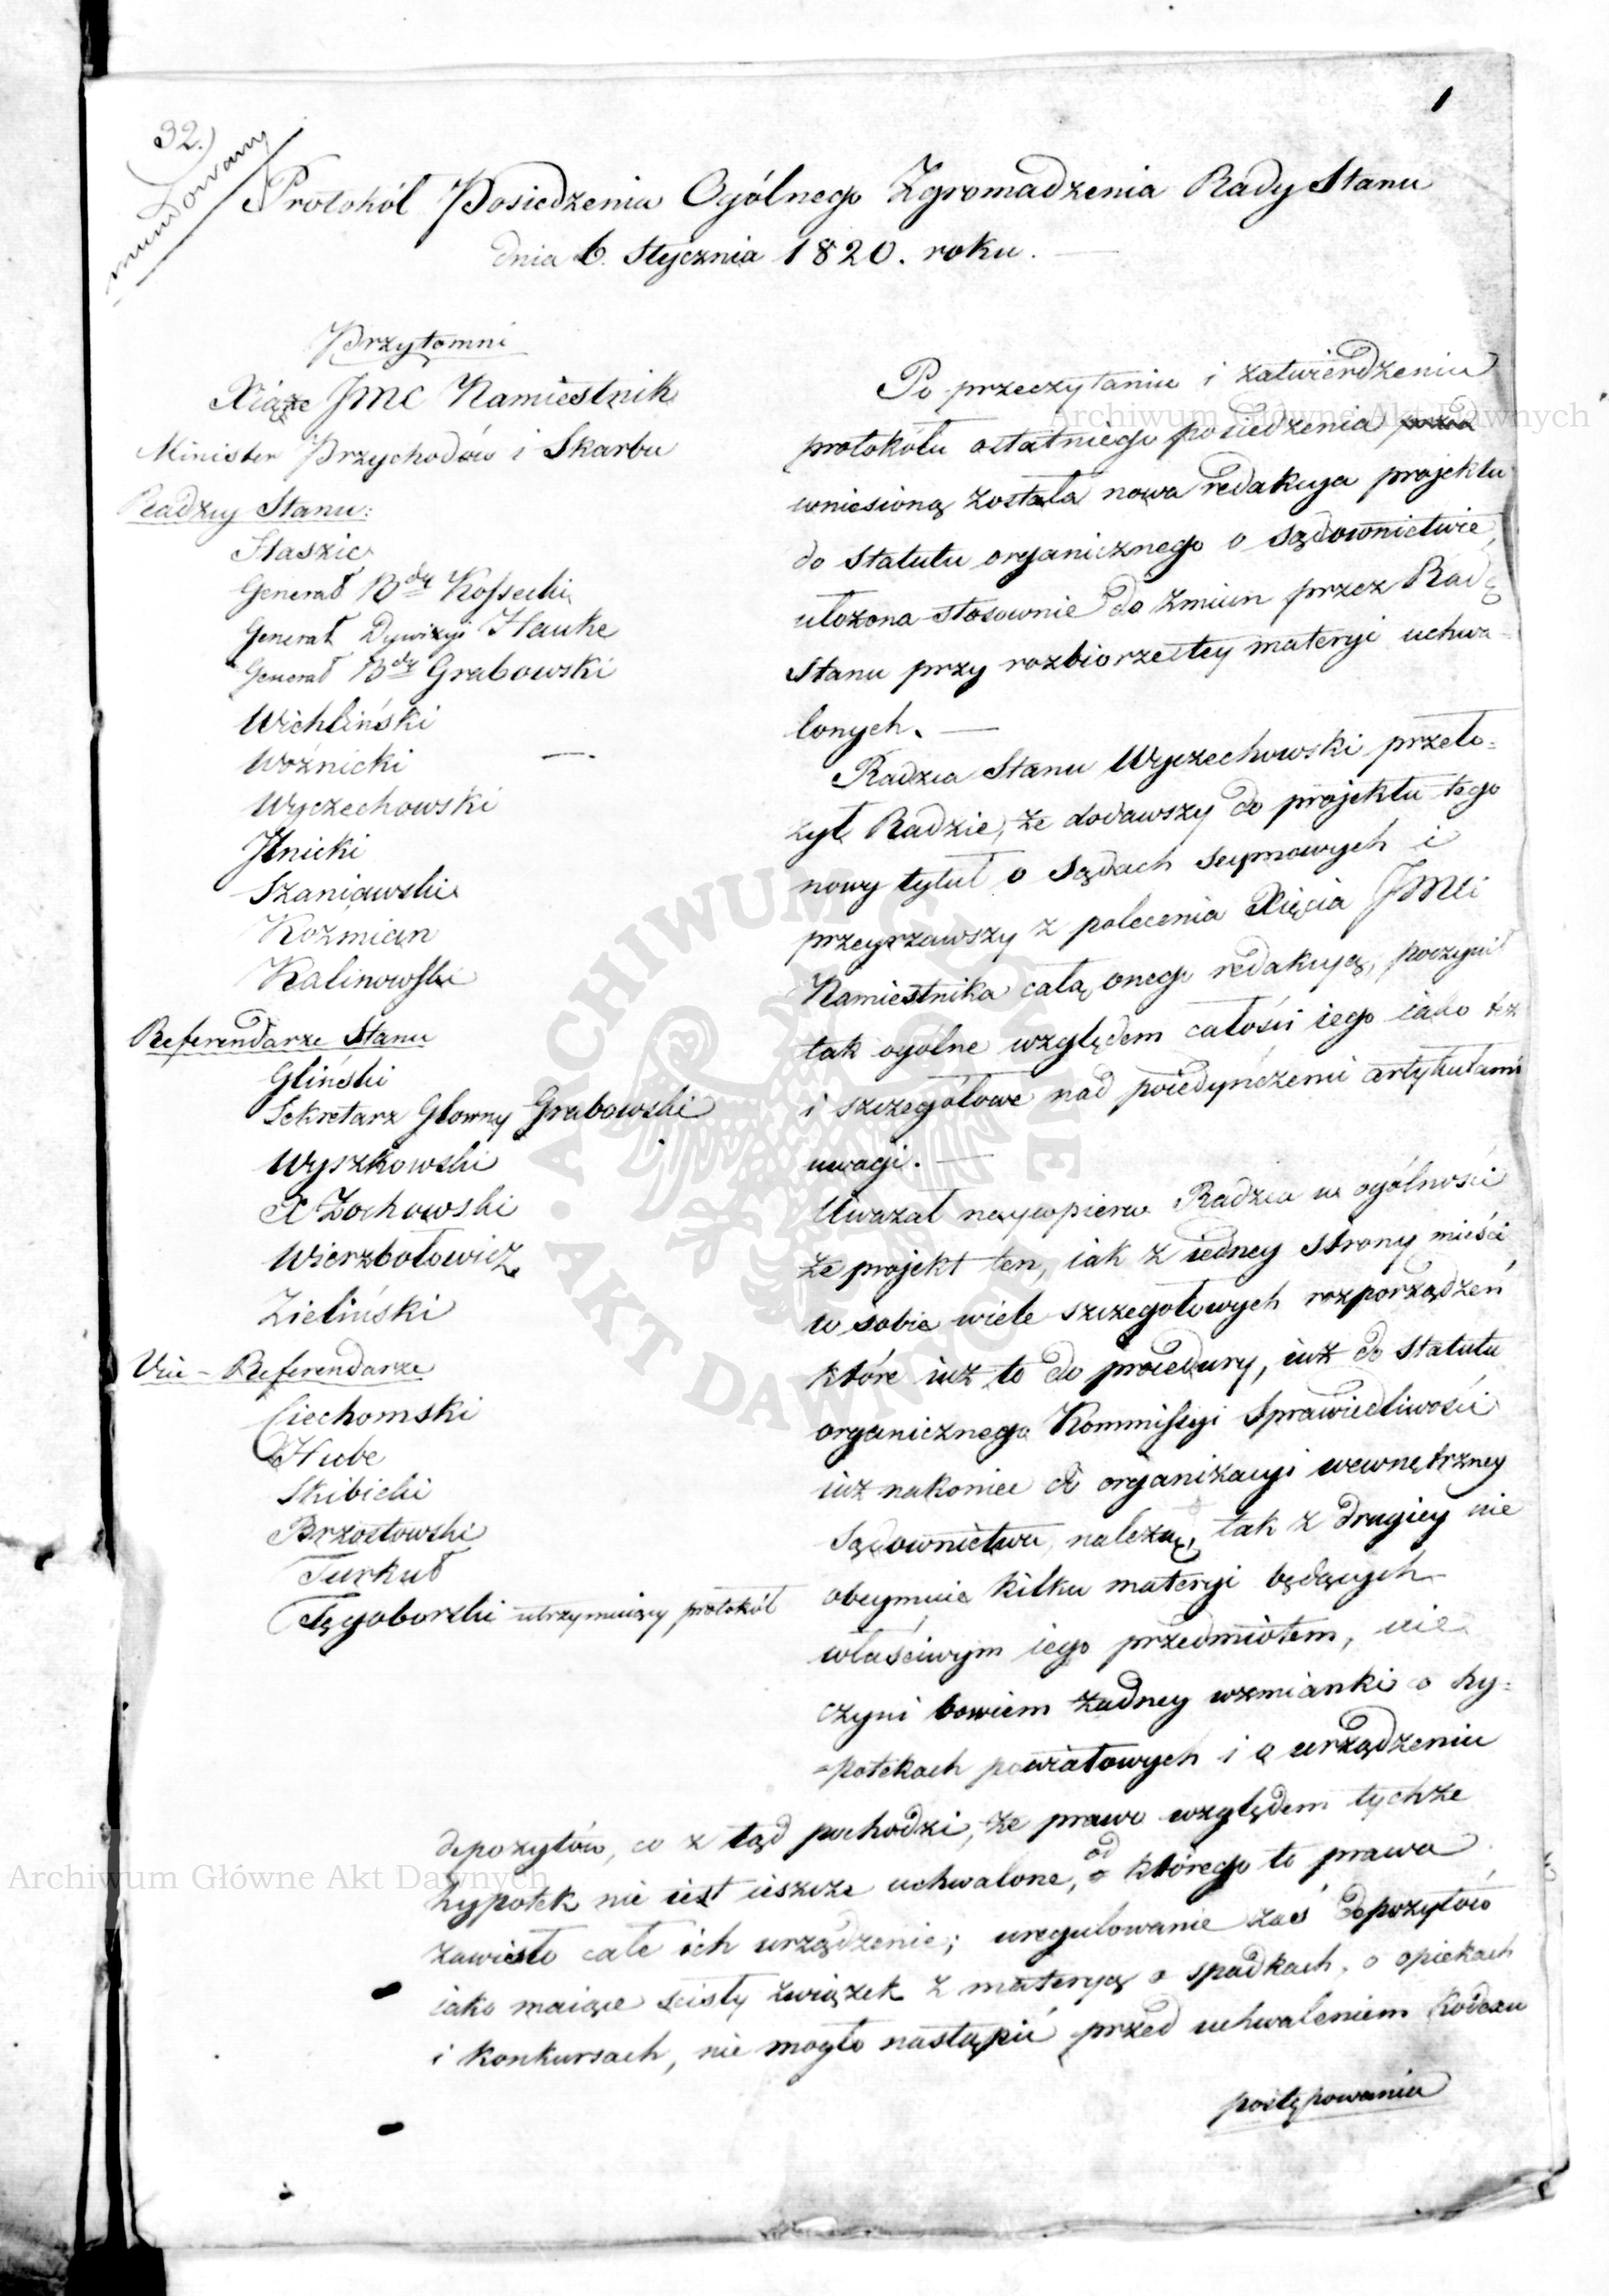 1
32.)
mundowany
Protokół Posiedzenia Ogólnego Zgromadzenia Rady Stanu
dnia 6. Stycznia 1820. roku.
Przytomni
Xiąże JMC Namiestnik
Minister Przychodów i Skarbu
Radzcy Stanu:
Staszic
Generał Bdy Kossecki
Generał Dywizyi Hauke
Generał Bdy Grabowski
Wichliński
Woźnicki
Wyczechowski
Jłnicki
Szaniawski
Koźmian
Kalinowski
Referendarze Stanu
Gliński
Sekretarz Głowny Grabowski
Wyszkowski
X Zochowski
Wierzbołowicz
Zieliński
Vice-Referendarze
Ciechomski
Hube
Skibicki
Brzostowski
Turkuł
Tęgoborski utrzymuiący protokół
Po przeczytaniu i zatwierdzeniu
protokółu ostatniego posiedzenia
wniesioną została nowa redakcya projektu
do statutu organicznego o sądownictwie,
ułożona stosownie do zmian przez Radę
Stanu przy rozbiorze tey materyi uchwa-
lonych.
Radzca Stanu Wyczechowski przeło=
żył Radzie, że dodawszy do projektu tego
nowy tytuł o Sądach seymowych i
przeyrzawszy z polecenia Xięcia JMCi
Namiestnika całą onego redakcyą, poczynił
tak ogólne względem całości iego iako też
i szczegółowe nad poiedyńczemi artykułami
uwagi.
Uważał naypierw Radzca w ogólności
że projekt ten, iak z iedney strony mieści
w sobie wiele szczegołowych rozporządzeń
które iuż to do procedury, iuż do statutu
organicznego Kommissyi Sprawiedliwości
iuż nakoniec do organizacyi wewnętrzney
Sądownictwa należą, tak z drugiey nie
obeymuie kilku materyi będących
właściwym iego przedmiotem, nie
czyni bowiem żadney wzmianki o hy=
=potekach powiatowych i o urządzeniu
depozytów, co z tąd pochodzi, że prawo względem tychże
hypotek nie iest ieszcze uchwalone, od którego to prawa
zawisło całe ich urządzenie; uregulowanie zaś depozytów
iako maiące scisły związek z materyą o spadkach, o opiekach
i konkursach, nie mogło nastąpić przed uchwaleniem Kodexu
postępowania
Archiwum Główne Akt Dawnych
Archiwum Główne Akt Dawnych
ARCHIWUM GŁÓWNE
AKT DAWNYCH